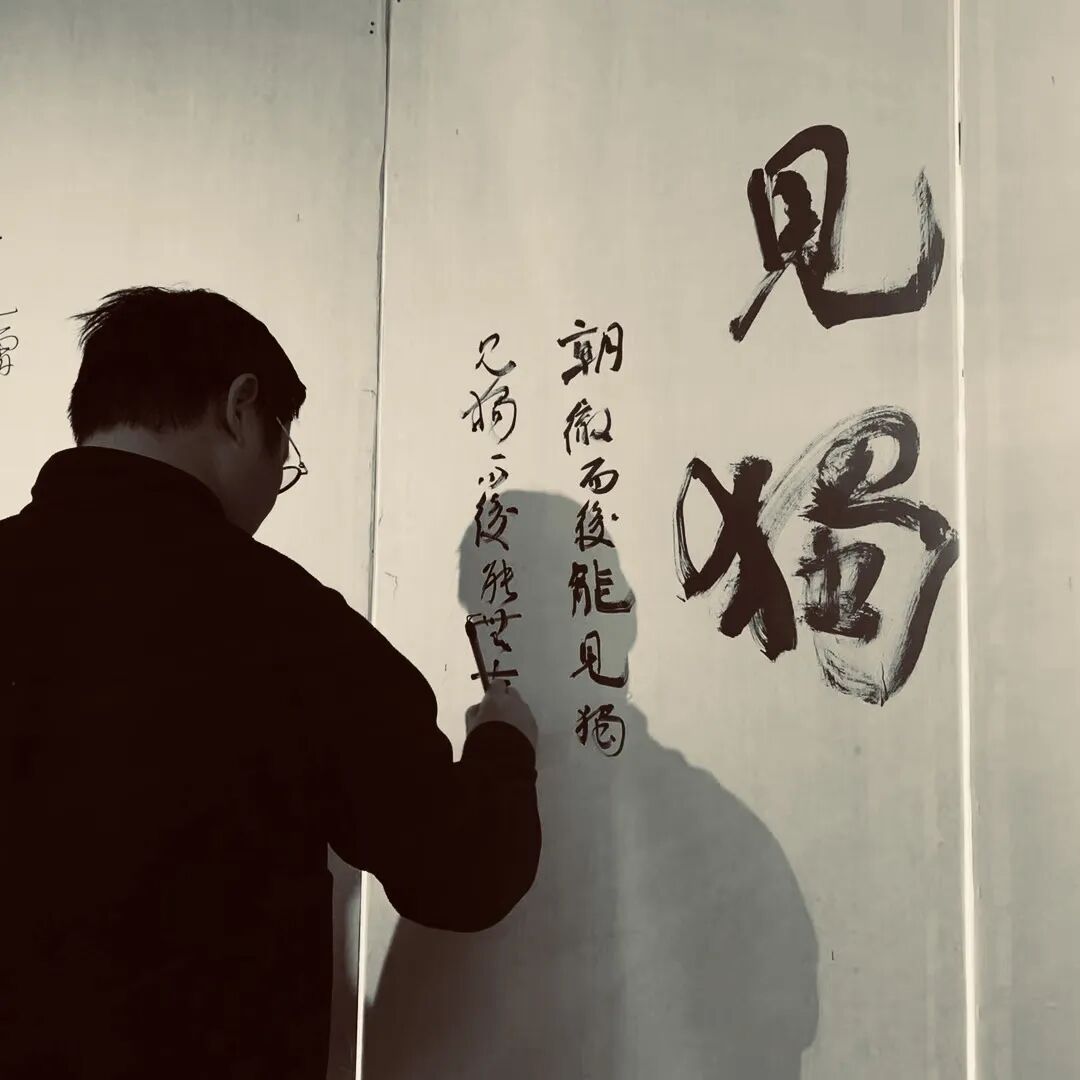 見獨
朝徹而後能見獨
見獨而後能無古